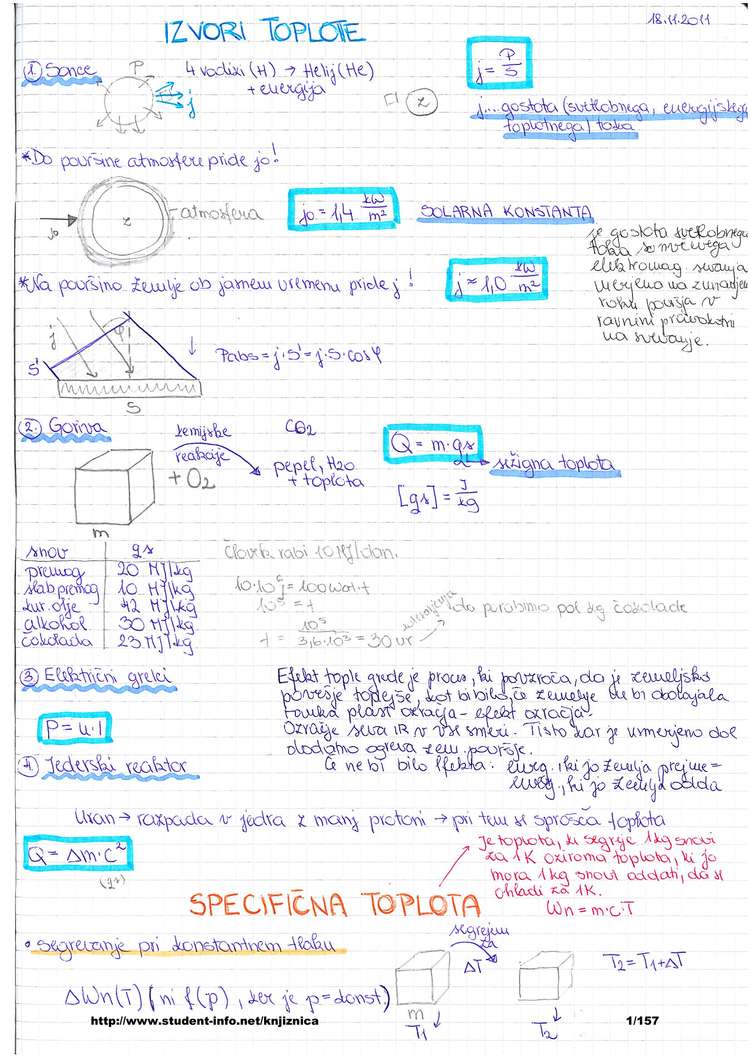 18.11.2011
IZVORI TOPLOTE
① Sonce
P
j
4 vodiki (H) → Helij (He)
+ energija
z
j = P/S
j... gostota (svetlobnega, energijskega
toplotnega) toka
*Do površine atmosfere pride j0!
j0
z
atmosfera
j0 = 1,4 kW/m²
SOLARNA KONSTANTA
je gostota svetlobnega
toka sončevega
elektromag. sevanja
merjeno na zunanjem
robu površja v
ravnini pravokotni
na sevanje.
*Na površino zemlje ob jasnem vremenu pride j!
j ≈ 1,0 kW/m²
j
φ
S'
S
Pabs = j·S' = j·S·cosφ
② Goriva
m
kemijske
reakcije
+ O2
CO2
pepel, H2O
+ toplota
Q = m·qs
sežigna toplota
[qs] = J/kg
snov | qs
premog | 20 MJ/kg
slab premog | 10 MJ/kg
kur. olje | 42 MJ/kg
alkohol | 30 MJ/kg
čokolada | 23 MJ/kg
Človek rabi 10 MJ/dan.
10·10⁶J = 100wat·t
10⁵ = t
t = 10⁵/3,6·10³ = 30 ur
da porabimo pol kg čokolade
③ Električni grelci
P = u·I
Efekt tople grede je proces, ki povzroča, da je zemeljsko
površje toplejše, kot bi bilo, če zemelje ne bi obdajala
tanka plast ozračja - efekt ozračja.
Ozračje seva IR v vse smeri. Tisto kar je usmerjeno dol
dodatno ogreva zem. površje.
Če ne bi bilo efekta: energ., ki jo zemlja prejme =
energ., ki jo zemlja odda
④ Jederski reaktor
Uran → razpada v jedra z manj protoni → pri tem se sprošča toplota
Q = Δm·c²
Je toplota, ki segreje 1kg snovi
za 1K oziroma toplota, ki jo
mora 1kg snovi oddati, da se
ohladi za 1K.
Wn = m·c·T
SPECIFIČNA TOPLOTA
• segrevanje pri konstantnem tlaku
segrejem
za
ΔT
T2 = T1 + ΔT
ΔWn(T) (ni f(p), ker je p = konst.)
m
T1
T2
http://www.student-info.net/knjiznica
1/157